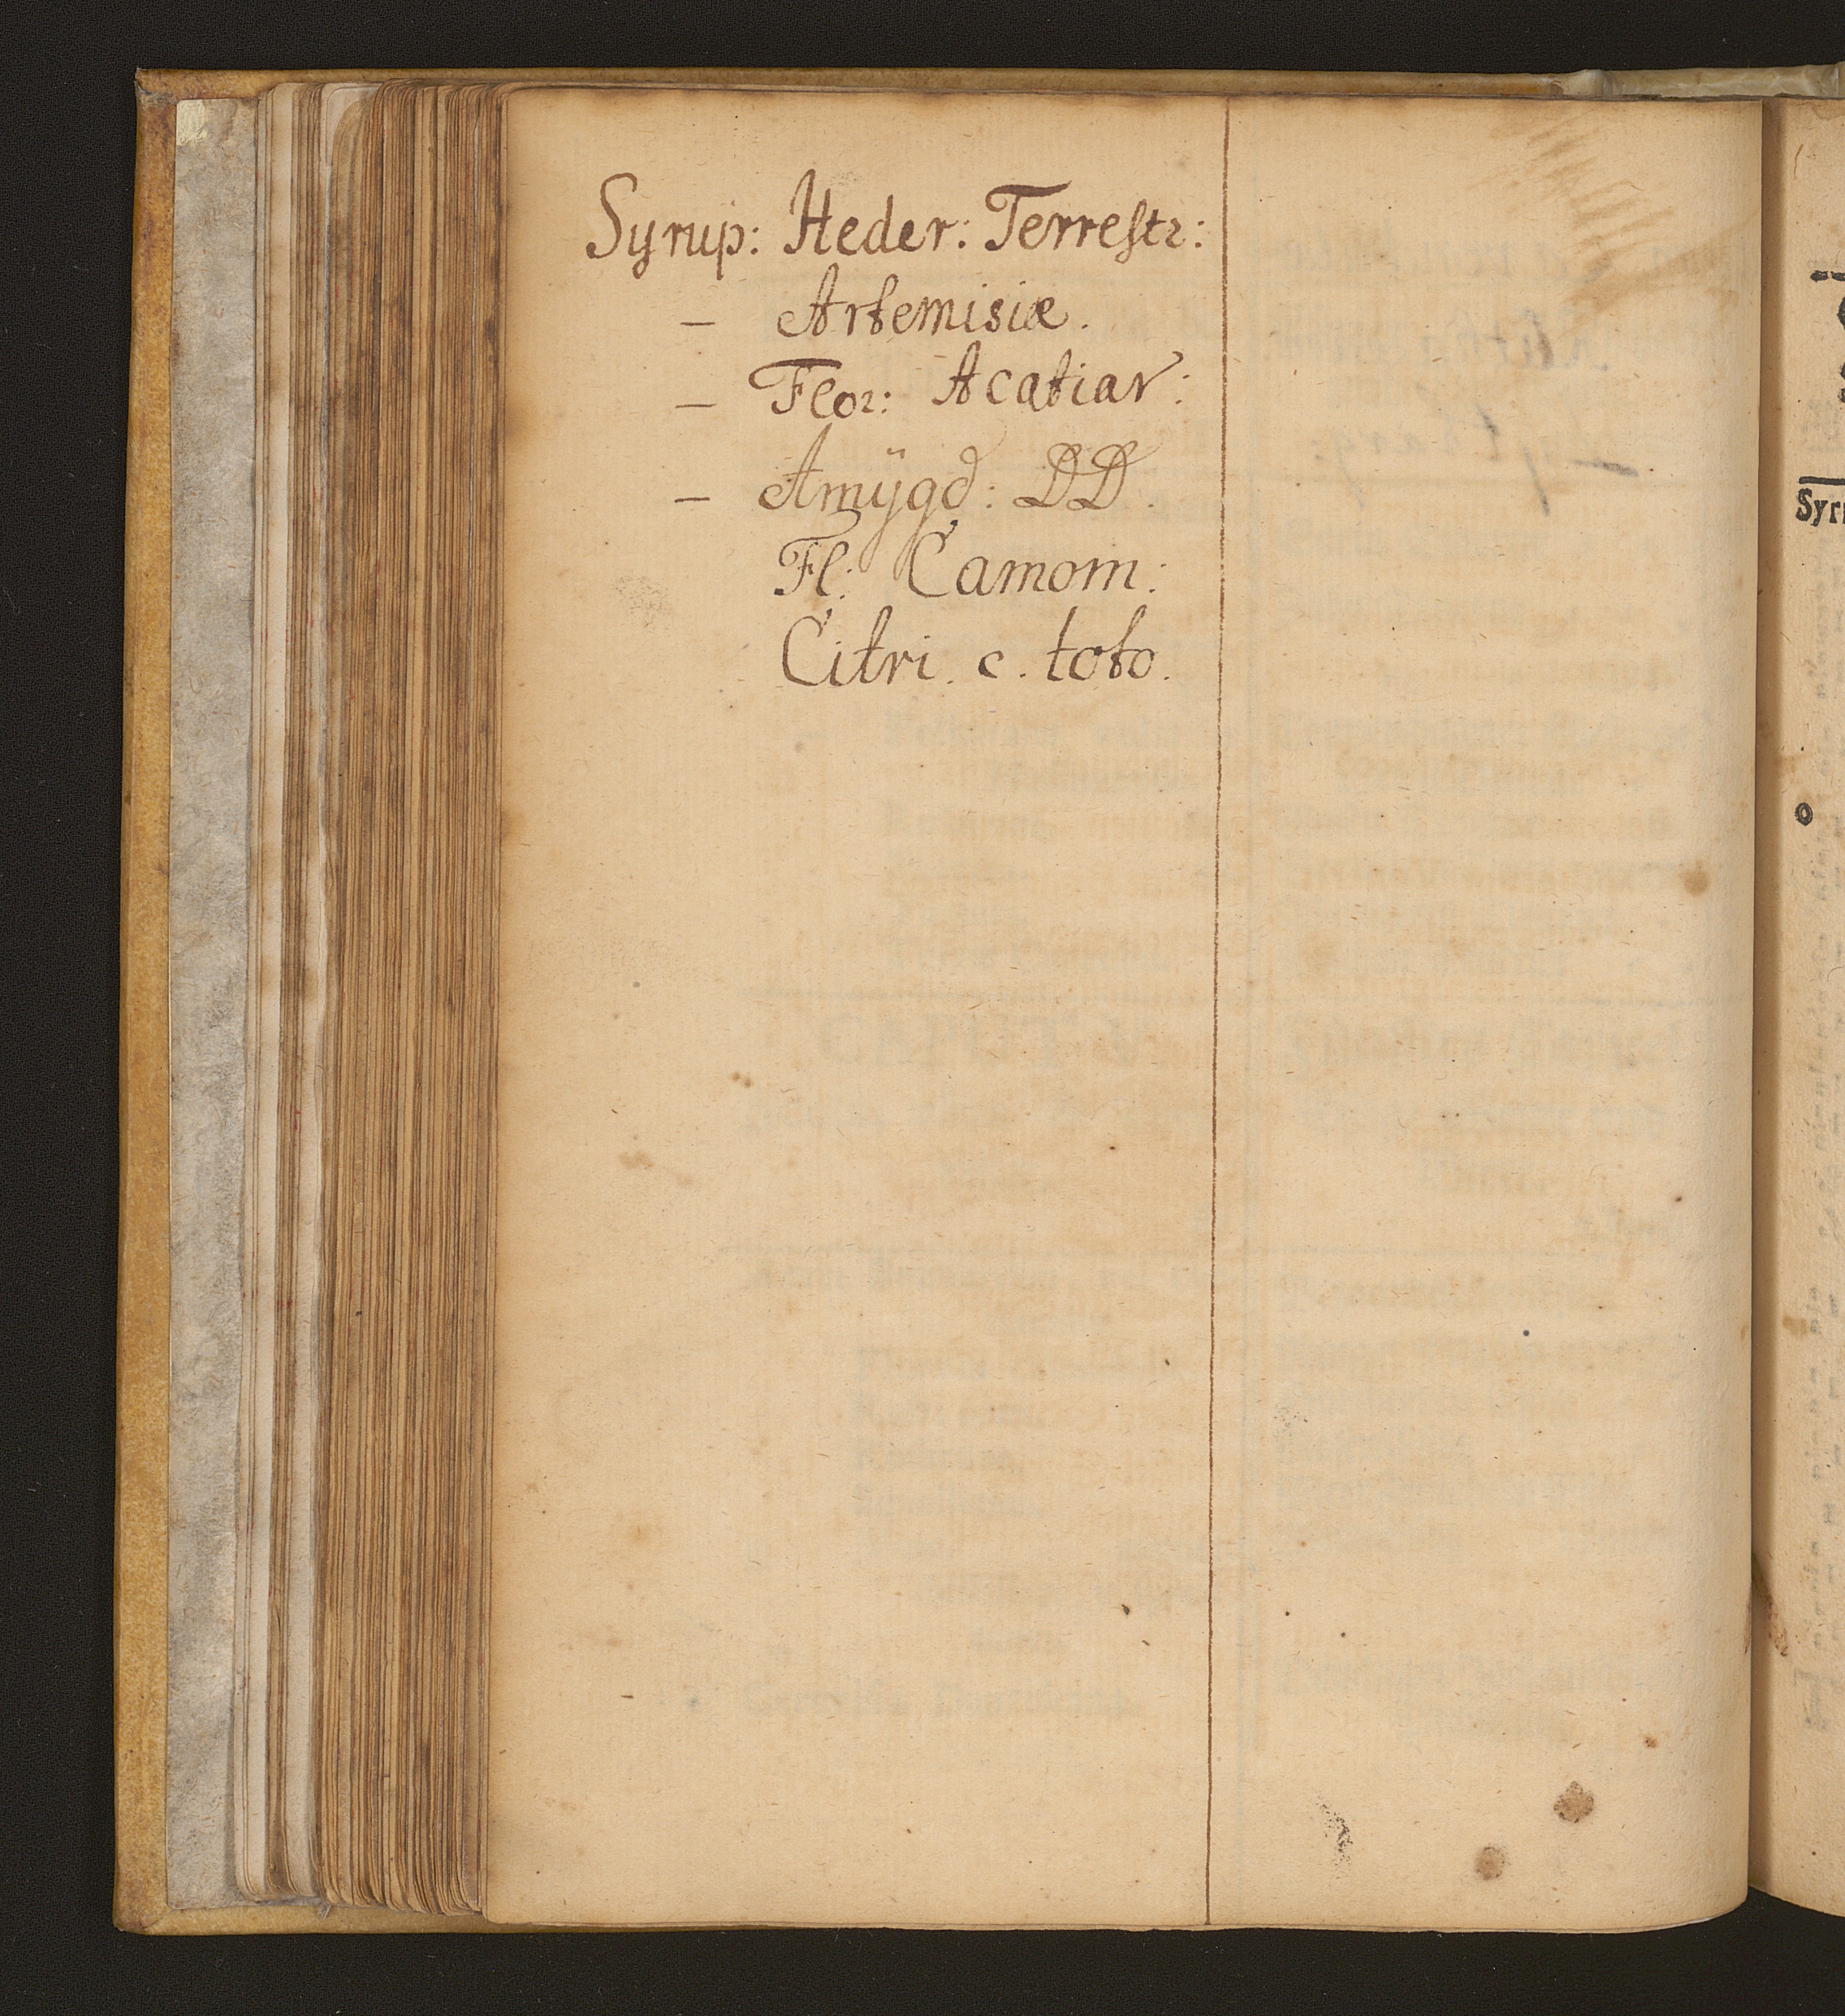 Syrup: Heder: Terrestr:
– Artemisiæ.
– Flor: Acatiar:
– Amÿgd: DD.
Fl: Camom:
Citri. c. toto.
Syr